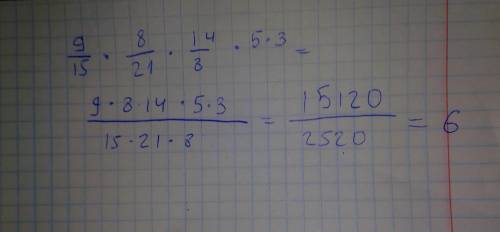 9/15 · 8/21 · 14/8 · 5·3 =
9·8·14·5·3 / 15·21·8 = 15120 / 2520 = 6